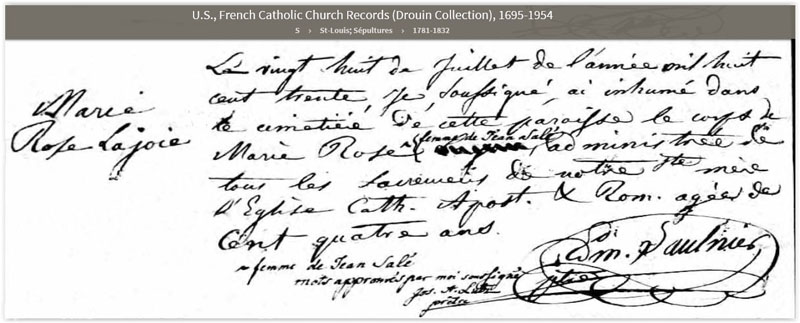 U.S., French Catholic Church Records (Drouin Collection), 1695-1954
S > St-Louis; Sépultures > 1781-1832
Marie
Rose Lajoie
Le vingt huit de Juillet de l'année mil huit
cent trente, je, soussigné, ai inhumé dans
le cimetière de cette paroisse le corps de
~ femme de Jean Salé
Marie Rose administrée de
tous les sacremens de notre Ste mère
l'Eglise Cath. Apost. & Rom. agée de
Cent quatre ans.
Edm. Saulnier
ptre
~ femme de Jean Salé
mots approuvés par moi soussigné
Jos. A. Lutz
prêtre